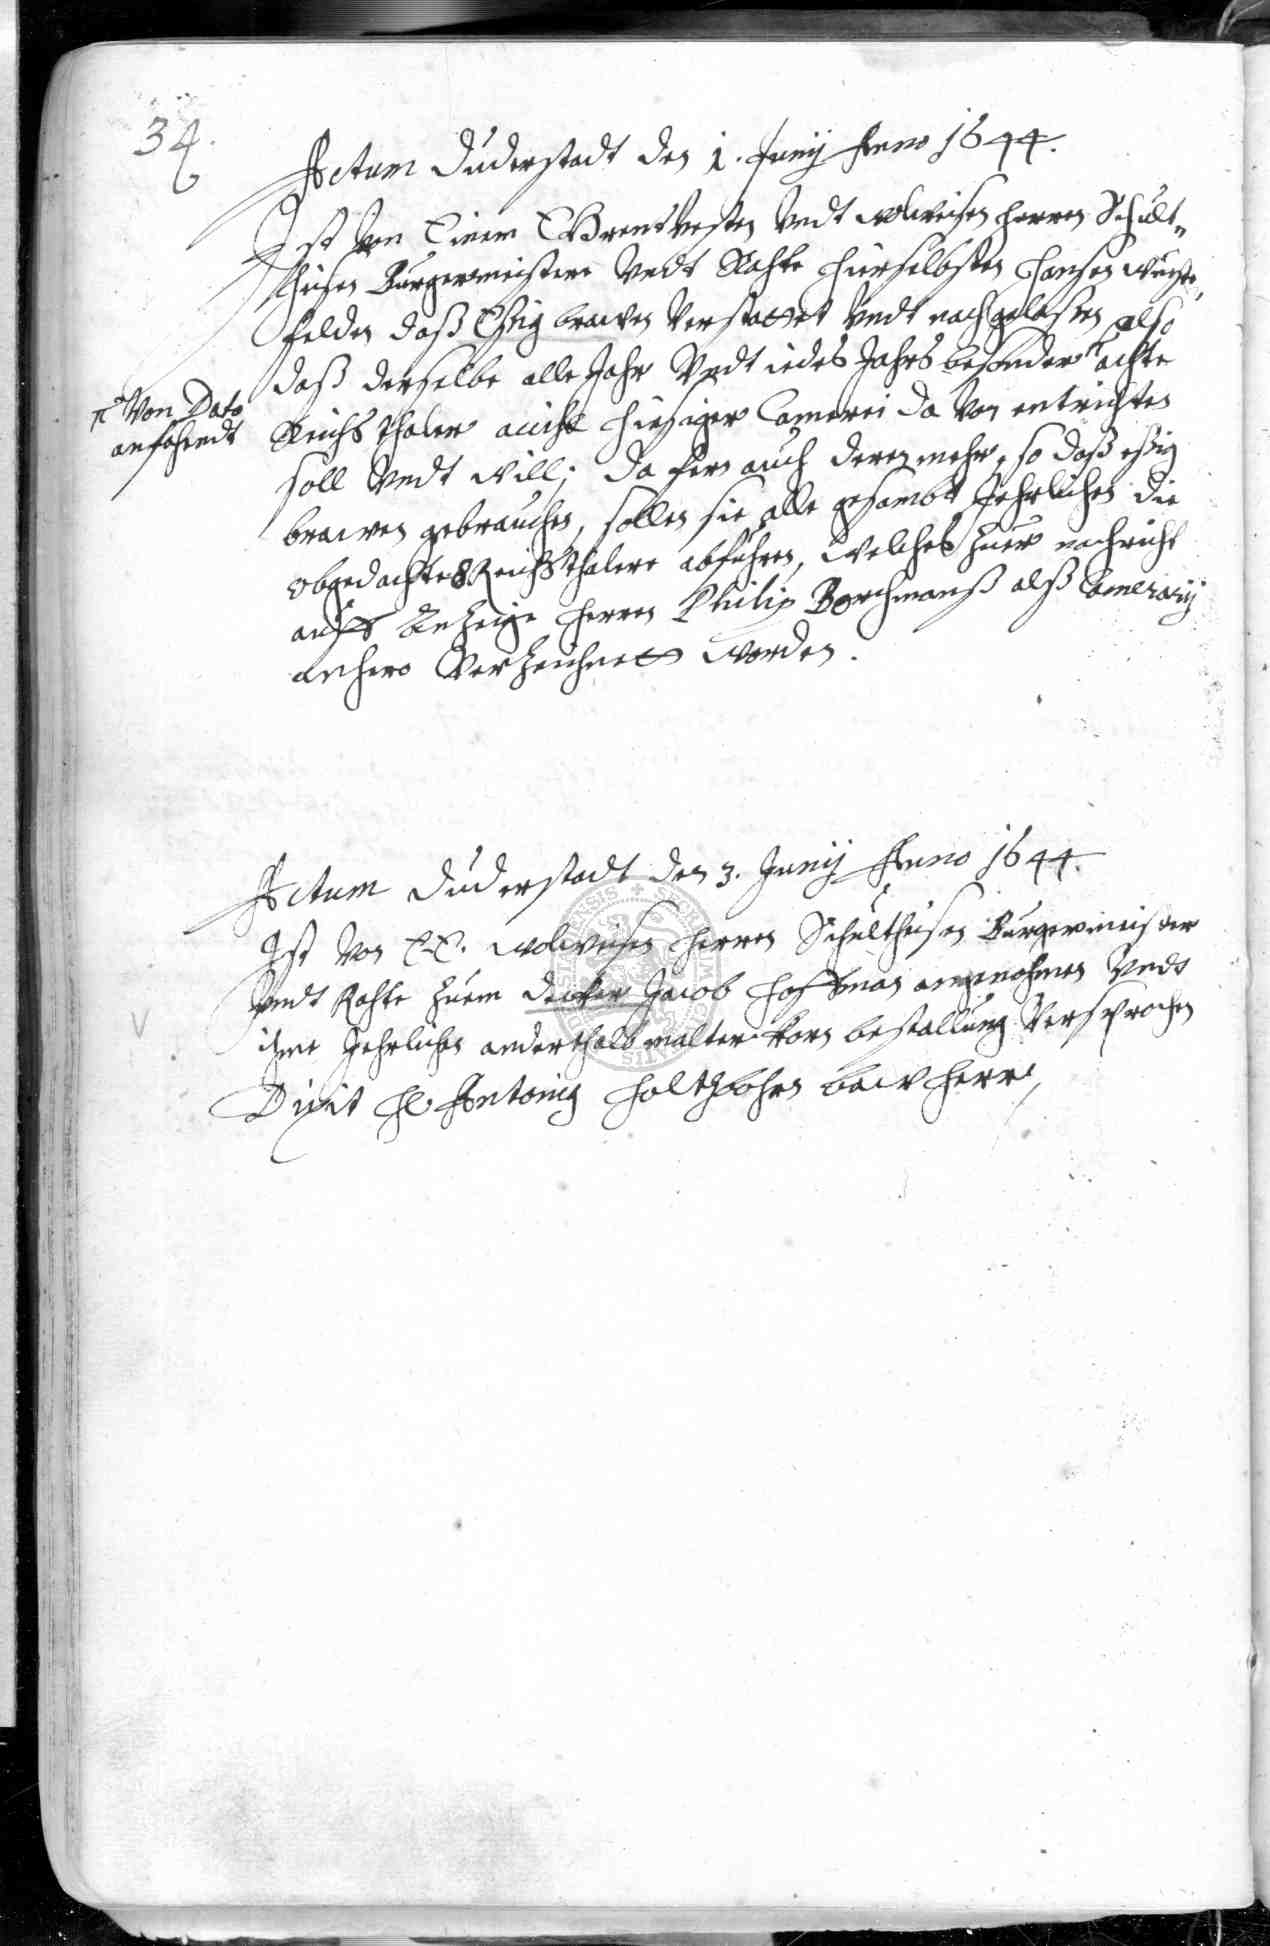 34.
Actum Duderstadt den 1. Junij Anno 1644.
Ist von Einem Ehrentvesten undt wolweisen herren Schult„
heisen Burgermeistere undt Rahte hierselbsten Hansen Wüste„
felden daß Eßig brawen verstattet undt nachgelassen also
daß derselbe alle Jahr undt iedes Jahrs besonder achte
π von Dato
anfahendt
Reichs thaler auf hiesiger Camerei da von entrichten
soll undt will; da fern auch deren mehr, so daß eßig
brawen gebrauchen, sollen sie alle gesambt Jehrlichen die
obgedachte 8 Reichsthalere abführen, welches zuer nachricht
auff Anzeige herren Philip Borchmanß alß Camerarij
anhero verzeichnett worden.
Actum Duderstadt den 3. Junij Anno 1644.
Ist von E.E. wolweisen herren Schultheisen Burgermeister
undt Rahte zuem decker Jacob Hoffman angenohmen undt
ihme Jehrlichen anderthalb malter korn bestallung versprochen
Dixit H. Antonig Holtzborn baw herr,